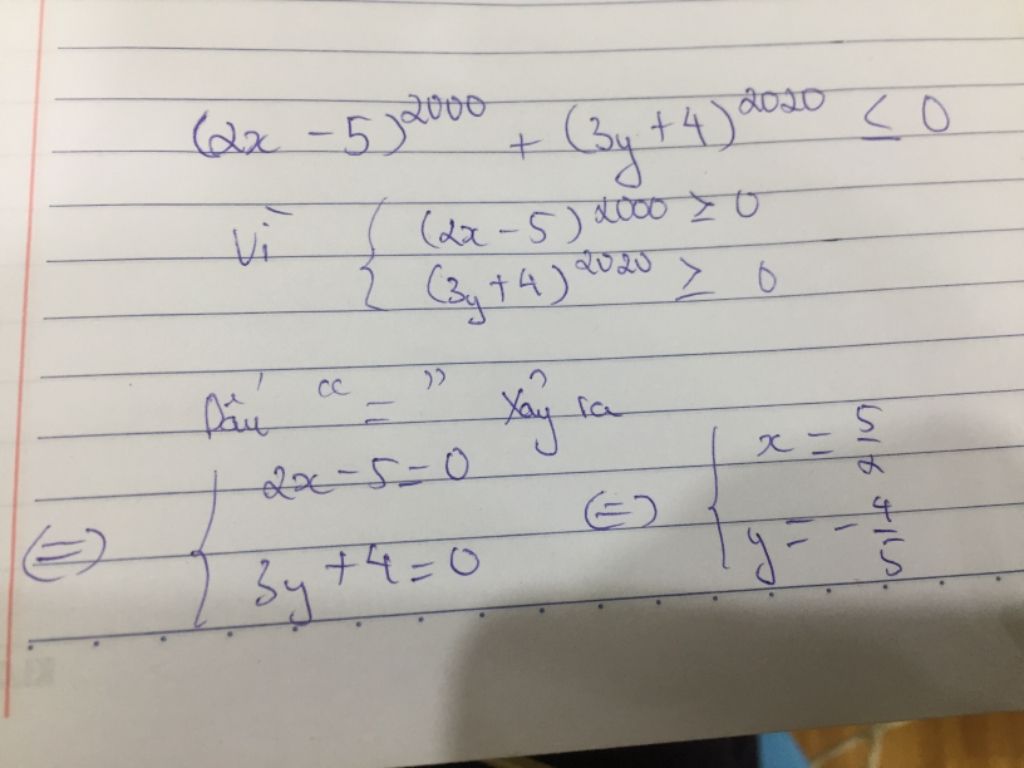 (2x - 5)^2000 + (3y + 4)^2020 ≤ 0
Vì { (2x - 5)^2000 ≥ 0
(3y + 4)^2020 ≥ 0
Dấu " = " xảy ra
(=) { 2x - 5 = 0 (=) { x = 5/2
3y + 4 = 0 y = - 4/5